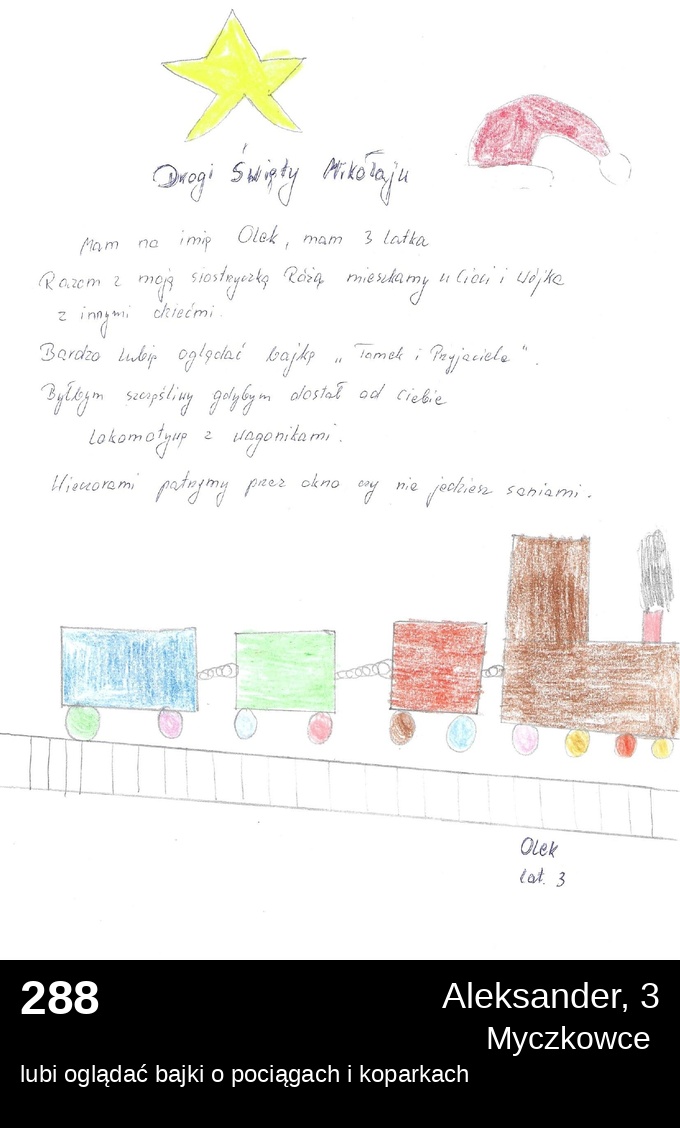 Drogi Święty Mikołaju
Mam na imię Olek, mam 3 latka
Razem z moją siostrzyczką Różą mieszkamy u Cioci i Wójka
z innymi dziećmi.
Bardzo lubię oglądać bajkę „Tomek i Przyjaciele".
Byłbym szczęśliwy gdybym dostał od Ciebie
lokomotywę z wagonikami.
Wieczorami patrzymy przez okno czy nie jedziesz saniami.
Olek
lat. 3
288
Aleksander, 3
Myczkowce
lubi oglądać bajki o pociągach i koparkach